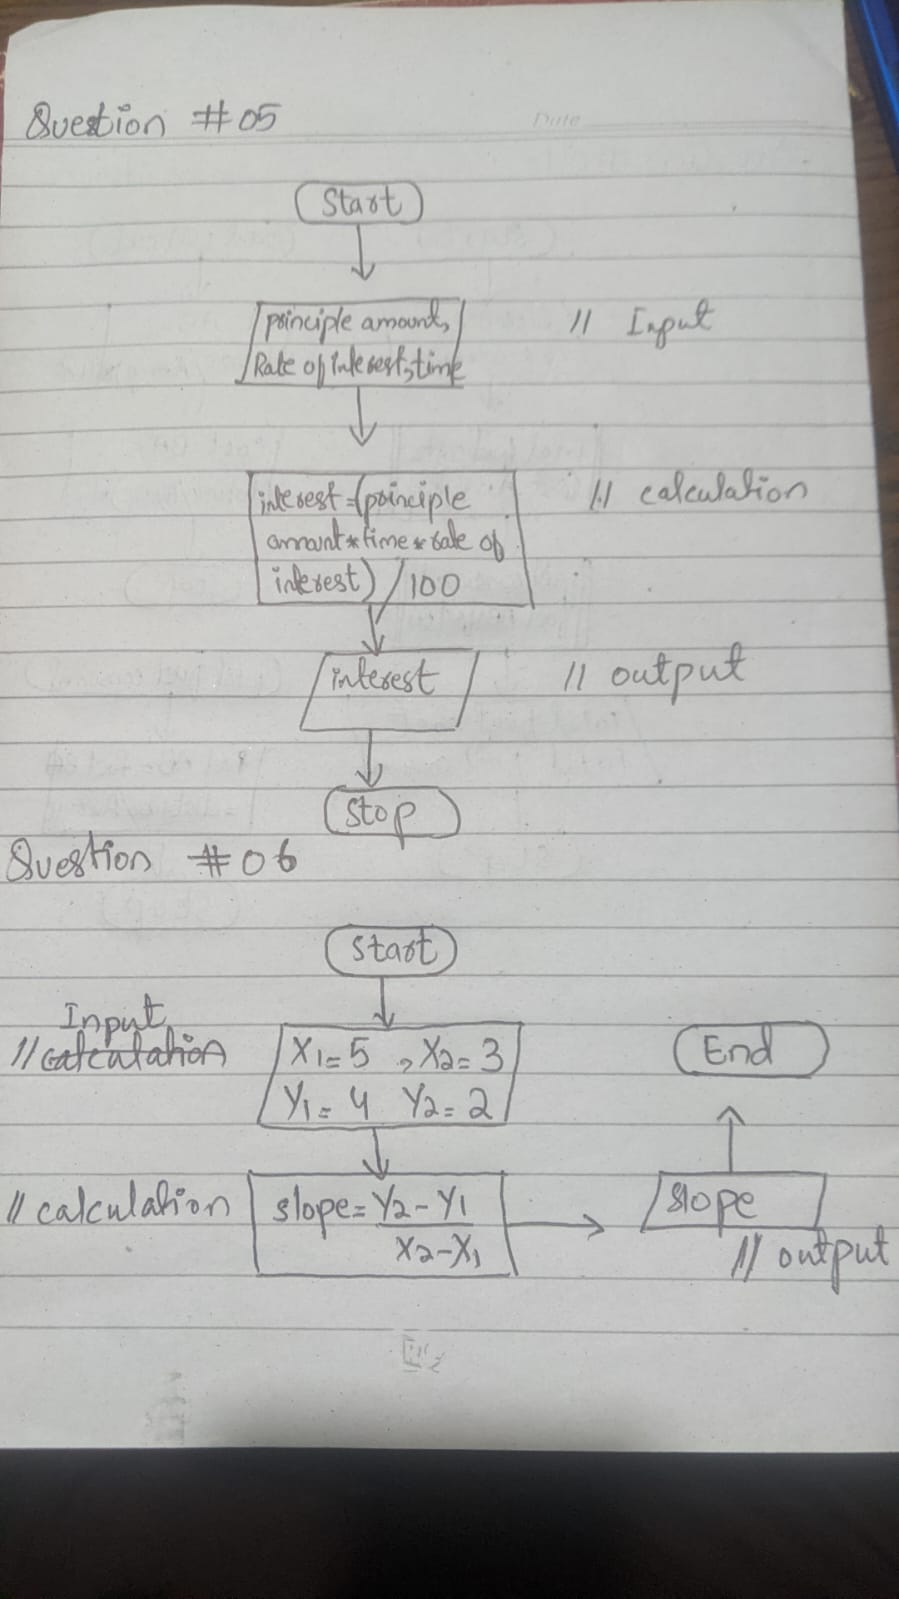 Question #05
Date
Start
principle amount,
Rate of interest, time
// Input
interest = (principle
amount * time * rate of
interest) / 100
// calculation
interest
// output
Stop
Question #06
Start
Input
// calculation
X1 = 5 , X2 = 3
Y1 = 4 Y2 = 2
End
// calculation
slope = Y2 - Y1
X2 - X1
slope
// output